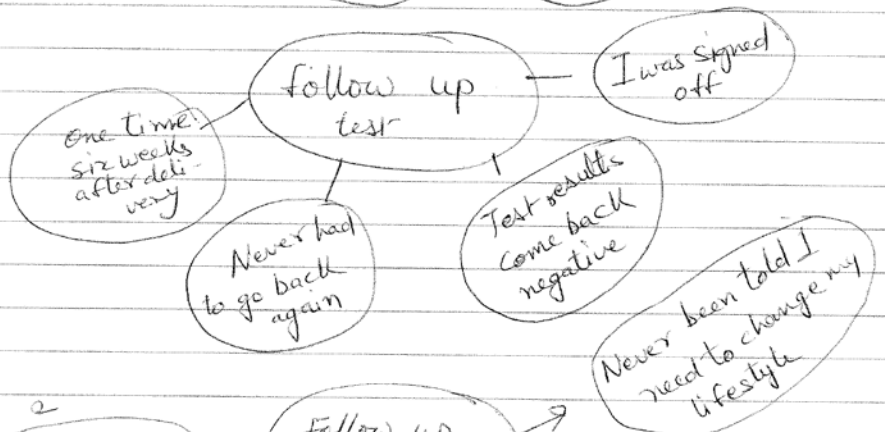 follow up
test
I was signed
off
one time
six weeks
after deli-
very
Never had
to go back
again
Test results
come back
negative
Never been told I
need to change my
lifestyle
2
Follow up